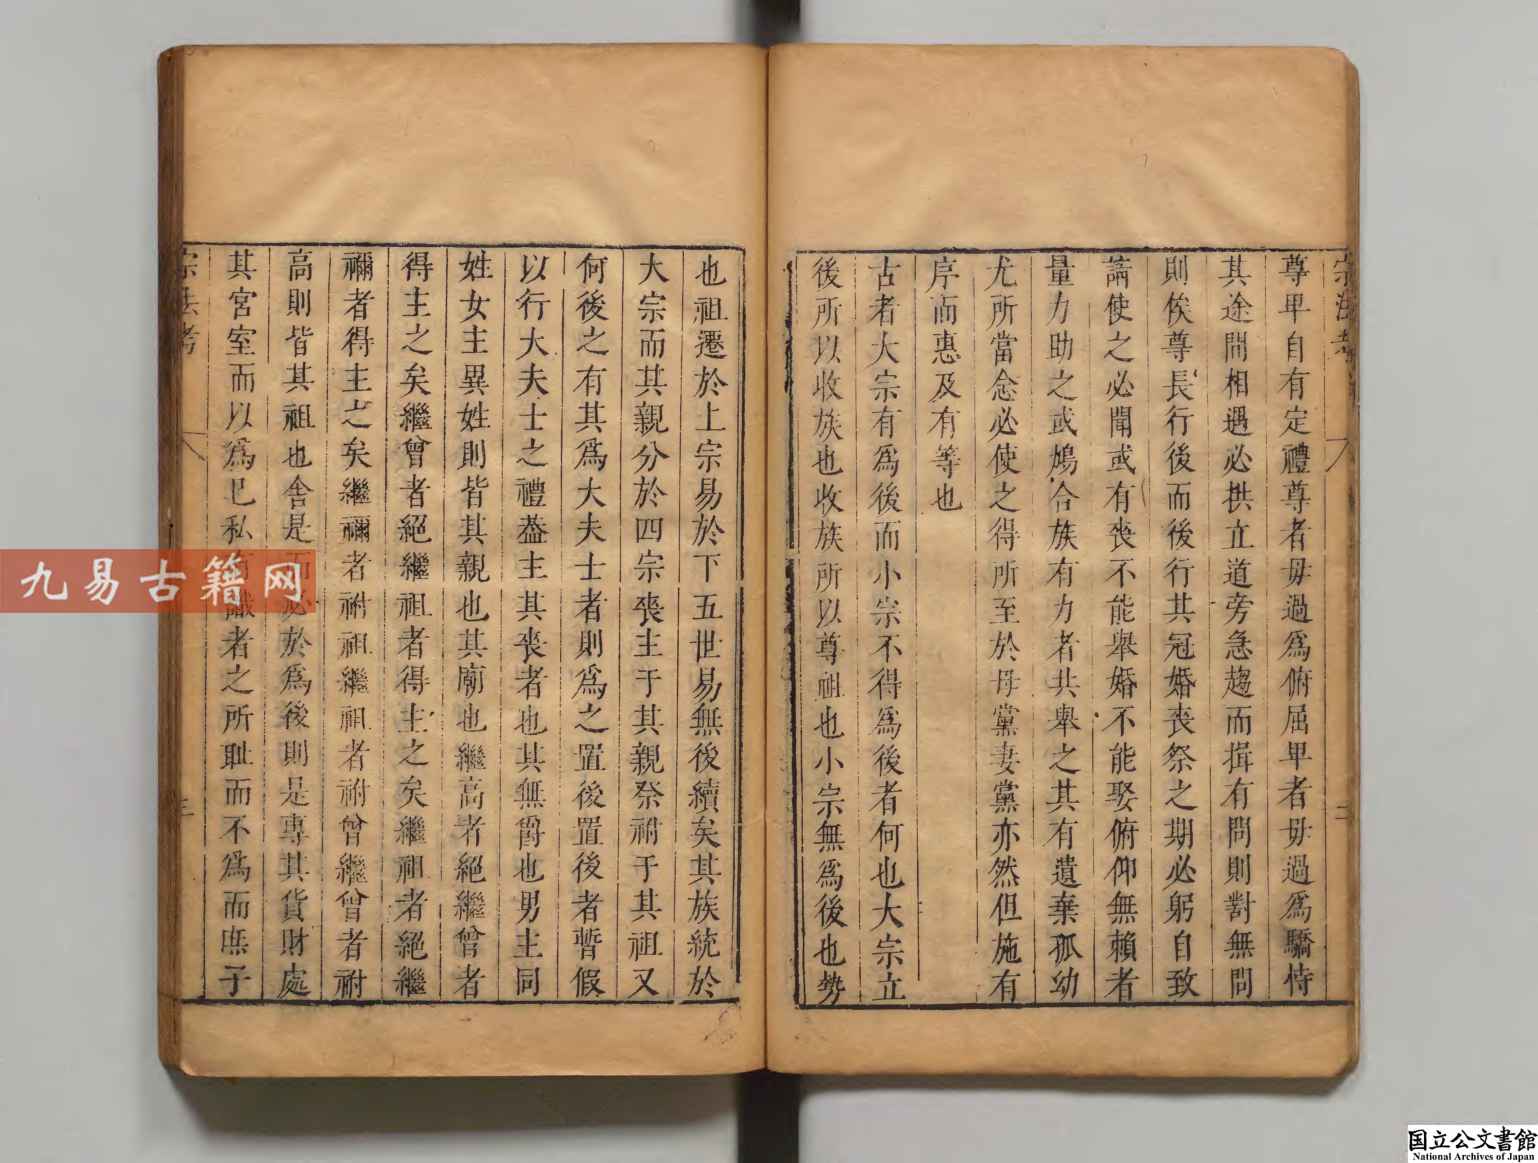 宗法考
尊卑自有定禮尊者毋過爲俯屈卑者毋過爲驕恃
其途間相遇必拱立道旁急趨而揖有問則對無問
則俟尊長行後而後行其冠婚喪祭之期必躬自致
蕭使之必聞或有喪不能舉婚不能娶俯仰無賴者
量力助之或鳩合族有力者共舉之其有遺棄孤幼
尤所當念必使之得所至於母黨妻黨亦然但施有
序而惠及有等也
古者大宗有爲後而小宗不得爲後者何也大宗立
後所以收族也收族所以尊祖也小宗無爲後也勢
也祖遷於上宗易於下五世易無後續矣其族統於
大宗而其親分於四宗喪主于其親祭祔于其祖又
何後之有其爲大夫士者則爲之置後置後者暫假
以行大夫士之禮葢主其喪者也其無爵也男主同
姓女主異姓則皆其親也其廟也繼高者絕繼曾者
得主之矣繼曾者絕繼祖者得主之矣繼祖者絕繼
禰者得主之矣繼禰者祔祖繼祖者祔曾繼曾者祔
高則皆其祖也舍是而必於爲後則是專其貨財處
其宮室而以爲己私有識者之所耻而不爲而庶子
宗法考
三
九易古籍网
国立公文書館
National Archives of Japan